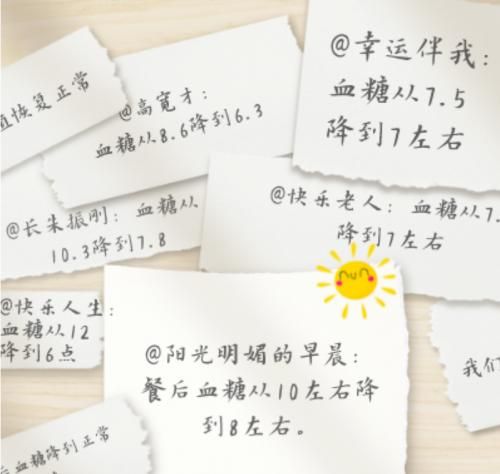 值恢复正常
@高宽才：
血糖从8.6降到6.3
@幸运伴我：
血糖从7.5
降到7左右
@长朱振刚：血糖从
10.3降到7.8
@快乐老人：血糖从7.
降到7左右
@快乐人生：
血糖从12
降到6点
@阳光明媚的早晨：
餐后血糖从10左右降
到8左右。
我们
后血糖降到正常